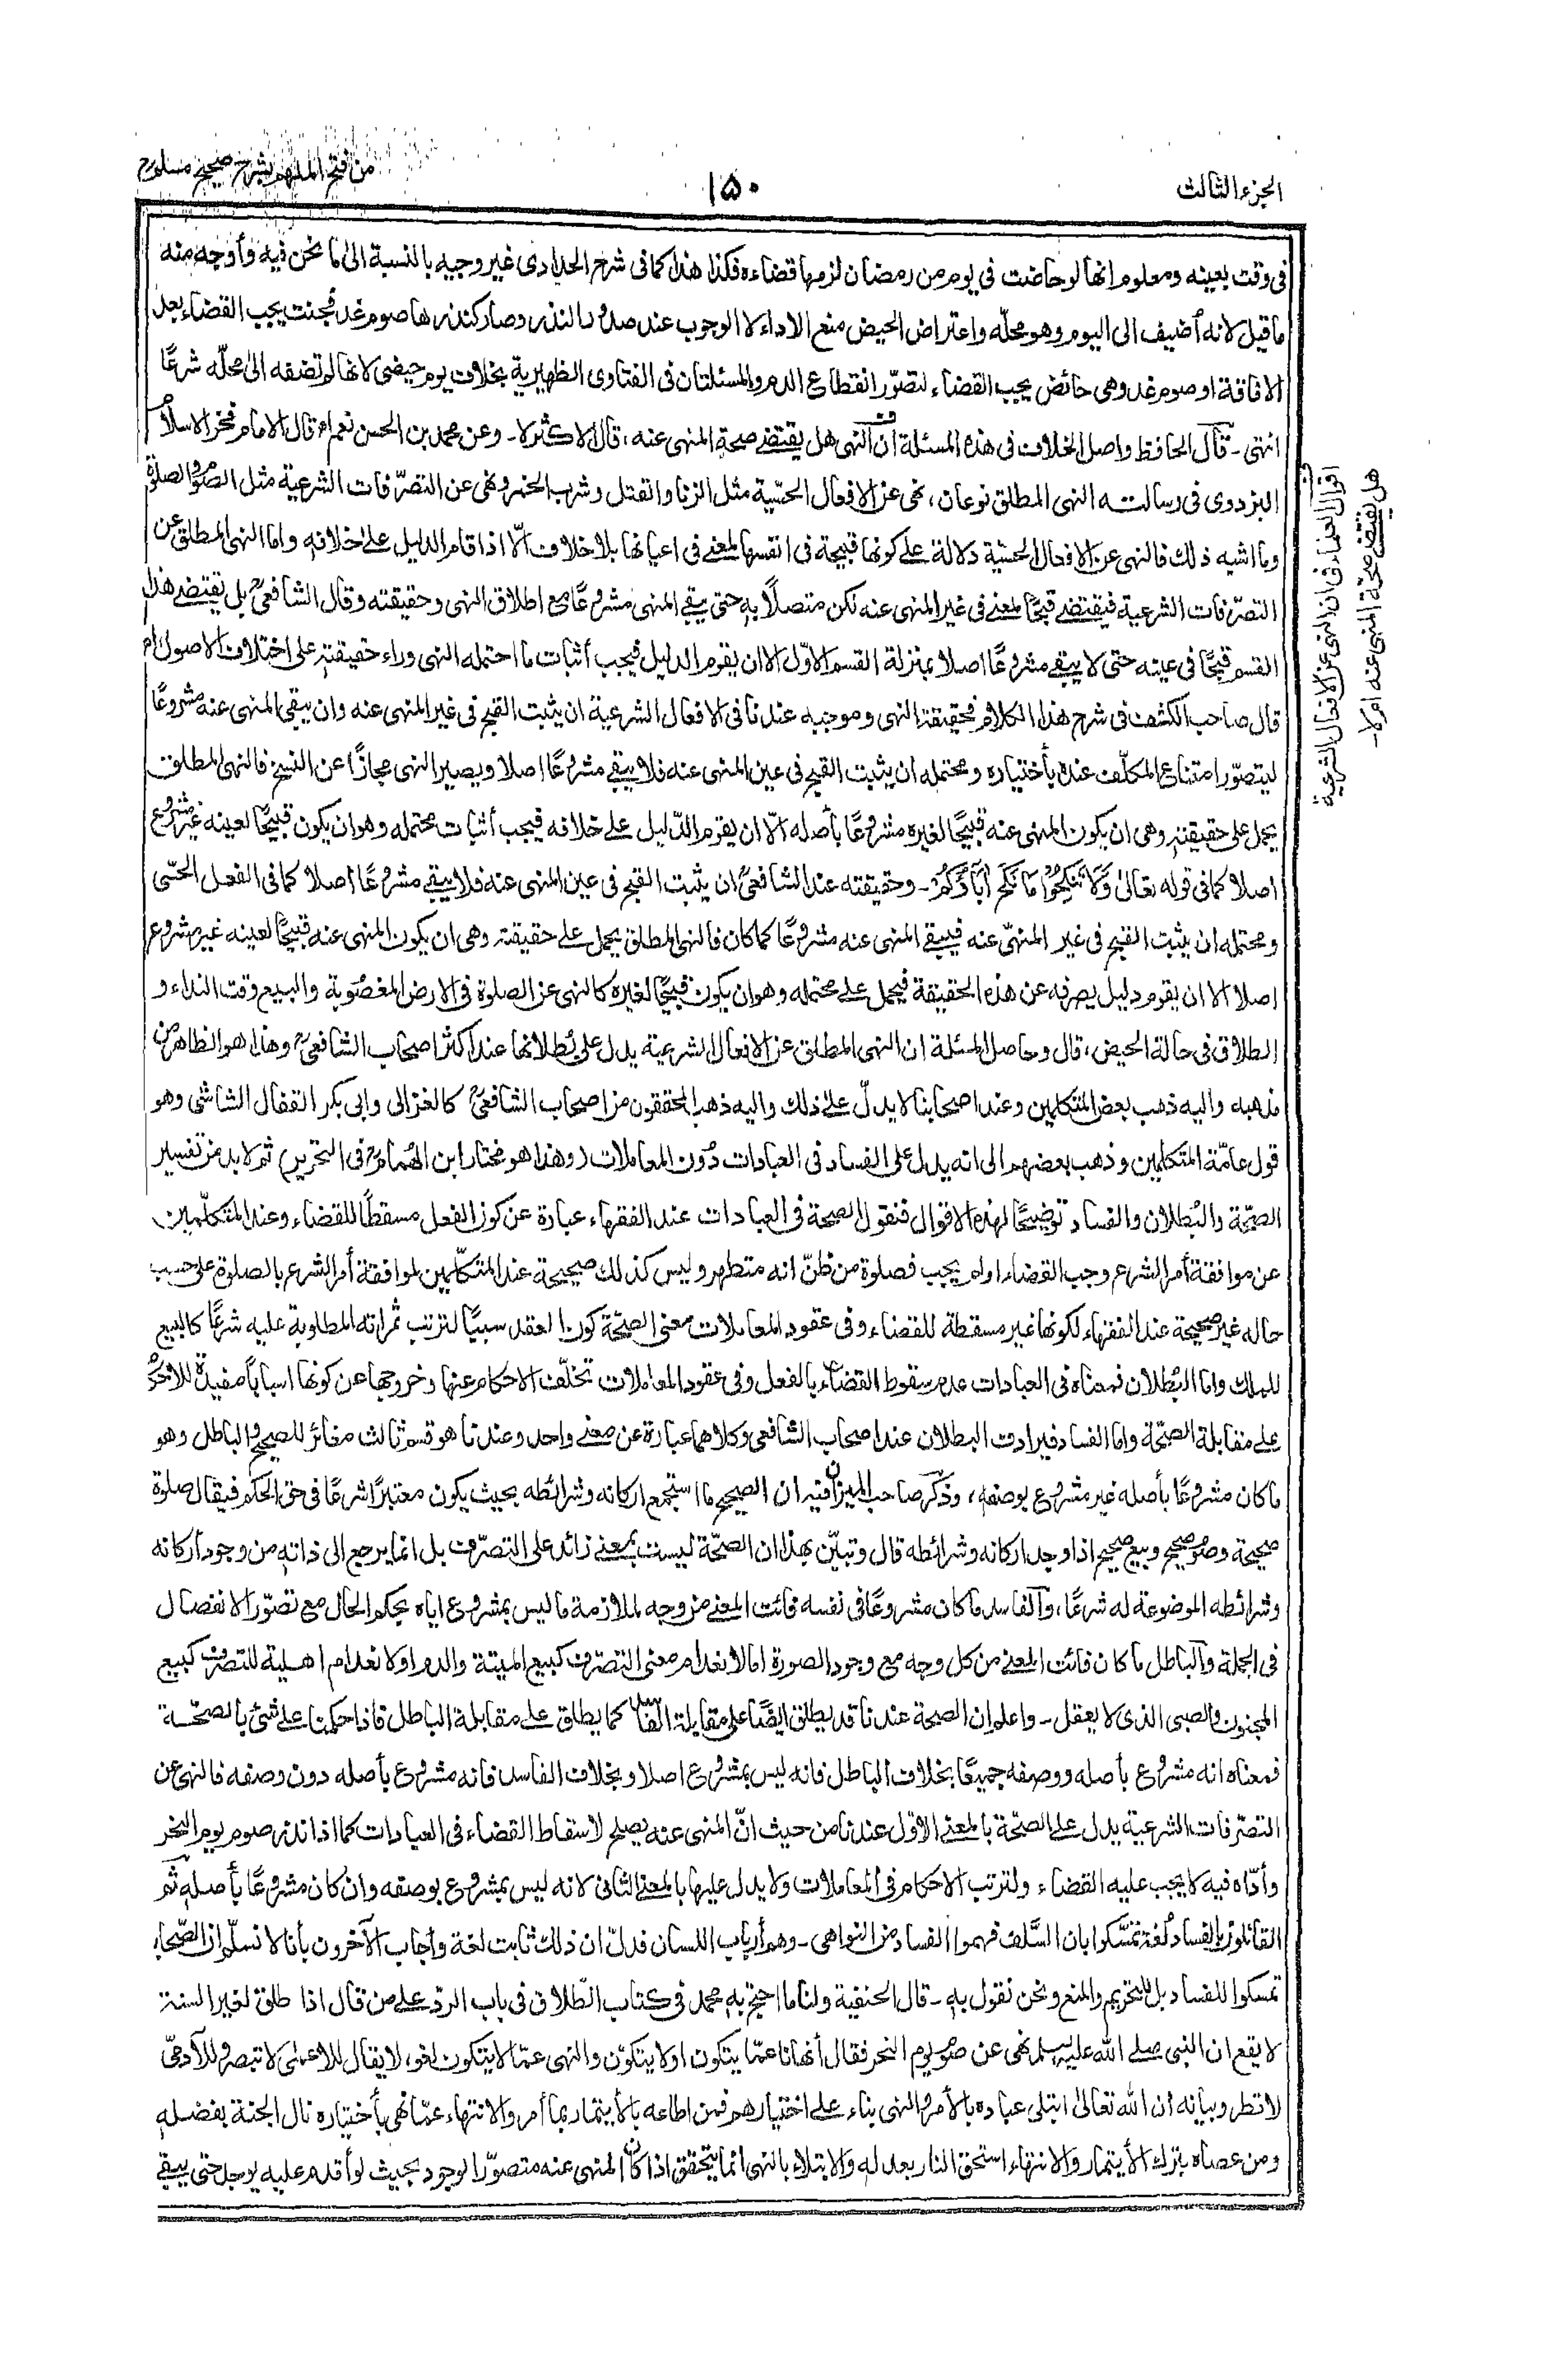 الجزء الثالث
١٥٠
من فتح الملهم بشرح صحيح مسلم
فى وقت بعينه ومعلوم انها لو حاضت فى يوم من رمضان لزمها قضاءه فكذا هذا كما فى شرح الحدادى غير وجيه بالنسبة الى ما نحن فيه وأوجه منه
ما قيل لانه أضيف الى اليوم وهو محلّه واعتراض الحيض منع الاداء لا الوجوب عند صدور النذر وصار كنذرها صوم غد فجنت يجب القضاء بعد
الافاقة او صوم غد وهى حائض يجب القضاء لتصوّر انقطاع الدم والمسئلتان فى الفتاوى الظهيرية بخلاف يوم حيضى لانها لم تضفه الى محلّه شرعًا
انتهى ـ قال الحافظ واصل الخلاف فى هذه المسئلة ان النهى هل يقتضے صحة المنهى عنه، قال الاكثر لا ـ وعن محمد بن الحسن نعم اه قال الامام فخر الاسلام
البزدوى فى رسالته النهى المطلق نوعان، نهى عن الافعال الحسّية مثل الزنا والقتل وشرب الخمر ونهى عن التصرّفات الشرعية مثل الصوم والصلوة
وما اشبه ذلك فالنهى عن الافعال الحسّية دلالة علے كونها قبيحة فى انفسها لمعنے فى اعيانها بلا خلاف الّا اذا قام الدليل علے خلافه واما النهى المطلق عن
التصرّفات الشرعية فيقتضے قبحًا لمعنے فى غير المنهى عنه لكن متصلًا به حتى يبقے المنهى مشروعًا مع اطلاق النهى وحقيقته وقال الشافعىؒ بل يقتضے هذا
القسم قبحًا فى عينه حتى لا يبقے مشروعًا اصلا بمنزلة القسم الاوّل الا ان يقوم الدليل فيجب أثبات ما احتمله النهى وراء حقيقته على اختلاف الاصول اه
قال صاحب الكشف فى شرح هذا الكلام فحقيقة النهى وموجبه عندنا فى الافعال الشرعية ان يثبت القبح فى غير المنهى عنه وان يبقى المنهى عنه مشروعًا
ليتصوّر امتناع المكلّف عنه بأختياره ومحتمله ان يثبت القبح فى عين المنهى عنه فلا يبقے مشروعًا اصلا ويصير النهى مجازًا عن النسخ فالنهى المطلق
يحمل على حقيقته وهى ان يكون المنهى عنه قبيحًا لغيره مشروعًا بأصله الّا ان يقوم الدّليل علے خلافه فيجب أثبات محتمله وهو ان يكون قبيحًا لعينه غير مشروع
اصلا كما فى قوله تعالىٰ وَلَا تَنْكِحُوْا مَا نَكَحَ اٰبَآؤُكُمْ ـ وحقيقته عند الشافعىؒ ان يثبت القبح فى عين المنهى عنه فلا يبقے مشروعًا اصلا كما فى الفعل الحسّى
ومحتمله ان يثبت القبح فى غير المنهىّ عنه فيبقے المنهى عنه مشروعًا كما كان فالنهى المطلق يحمل علے حقيقته وهى ان يكون المنهى عنه قبيحًا لعينه غير مشروع
اصلا الا ان يقوم دليل يصرفه عن هذه الحقيقة فيحمل علے محتمله وهو ان يكون قبيحًا لغيره كالنهى عن الصلوة فى الارض المغصوبة والبيع وقت النداء و
الطلاق فى حالة الحيض، قال وحاصل المسئلة ان النهى المطلق عن الافعال الشرعية يدل على بُطلانها عند أكثر اصحاب الشافعىؒ وهذا هو الظاهر من
مذهبه واليه ذهب بعض المتكلمين وعند اصحابنا لا يدلّ علے ذلك واليه ذهب المحققون من اصحاب الشافعىؒ كالغزالى وابى بكر القفال الشاشى وهو
قول عامّة المتكلمين وذهب بعضهم الى انه يدل على الفساد فى العبادات دُون المعاملات (وهذا هو مختار ابن الهُمامؒ فى التحرير) ثم لا بد من تفسير
الصحّة والبُطلان والفساد توضيحًا لهذه الاقوال فنقول الصحة فى العبادات عند الفقهاء عبارة عن كون الفعل مسقطًا للقضاء وعند المتكلّمين
عن موافقة أمر الشرع وجب القضاء او لم يجب فصلوة من ظنّ انه متطهر وليس كذلك صحيحة عند المتكلّمين لموافقة أمر الشرع بالصلوة على حسب
حاله غير صحيحة عند الفقهاء لكونها غير مسقطة للقضاء وفى عقود المعاملات معنى الصحّة كون العقد سببًا لترتب ثمراته المطلوبة عليه شرعًا كالبيع
للملك واما البُطلان فمعناه فى العبادات عدم سقوط القضاء بالفعل وفى عقود المعاملات تخلّف الاحكام عنها وخروجها عن كونها اسبابًا مفيدة للاحكام
علے مقابلة الصحّة واما الفساد فيرادف البطلان عند اصحاب الشافعى وكلاهما عبارة عن معنے واحد وعندنا هو قسم ثالث مغائر للصحيح والباطل وهو
ما كان مشروعًا بأصله غير مشروع بوصفه، وذكر صاحب الميزان فيه ان الصحيح ما استجمع اركانه وشرائطه بحيث يكون معتبرًا شرعًا فى حق الحكم فيقال صلوة
صحيحة وصوم صحيح وبيع صحيح اذا وجد اركانه وشرائطه قال وتبيّن بهذا ان الصحّة ليست بمعنے زائد على التصرّف بل انما يرجع الى ذاته من وجود أركانه
وشرائطه الموضوعة له شرعًا، والفاسد ما كان مشروعًا فى نفسه فائت المعنے من وجه لملازمة ما ليس بمشروع اياه بحكم الحال مع تصوّر الانفصال
فى الجملة والباطل ما كان فائت المعنے من كل وجه مع وجود الصورة اما لانعدام معنى التصرف كبيع الميتة والدم او لانعدام اهلية للتصرف كبيع
المجنون والصبى الذى لا يعقل ـ واعلم ان الصحة عندنا قد يطلق ايضًا على مقابلة الفاسد كما يطلق علے مقابلة الباطل فاذا حكمنا علے شئ بالصحّة
فمعناه انه مشروع بأصله ووصفه جميعًا بخلاف الباطل فانه ليس بمشروع اصلا وبخلاف الفاسد فانه مشروع بأصله دون وصفه فالنهى عن
التصرّفات الشرعية يدل علے الصحّة بالمعنے الاوّل عندنا من حيث انّ المنهى عنه يصلح لأسقاط القضاء فى العبادات كما اذا نذر صوم يوم النحر
وأدّاه فيه لا يجب عليه القضاء ولترتب الاحكام فى المعاملات ولا يدل عليها بالمعنے الثانى لانه ليس بمشروع بوصفه وان كان مشروعًا بأصله ثم
القائلون بالفساد لُغة تمسّكوا بان السَّلف فهموا الفساد من النواهى ـ وهم أرباب اللسان فدلّ ان ذلك ثابت لغة وأجاب الآخرون بأنا لا نسلّم ان الصّحابة
تمسكوا للفساد بل للتحريم والمنع ونحن نقول به ـ قال الحنفية ولنا ما احتج به محمد فى كتاب الطّلاق فى باب الردّ علے من قال اذا طلق لغير السنة
لا يقع ان النبى صلے الله عليه وسلم نهى عن صوم يوم النحر فقال أنهانا عمّا يتكون او لا يتكوّن والنهى عمّا لا يتكون لغو، لا يقال للاعمىٰ لا تبصر وللآدمىّ
لا تطر وبيانه ان الله تعالىٰ ابتلى عباده بالأمر والنهى بناء علے اختيارهم فمن اطاعه بالأيتمار بما أمر والانتهاء عمّا نهى بأختياره نال الجنة بفضله
ومن عصاه بترك الأيتمار والانتهاء استحق النار بعدله والابتلاء بالنهى انما يتحقق اذا كان المنهى عنه متصوّر الوجود بحيث لو أقدم عليه يوجد حتى يبقے
اقوال العلماء فى ان النهى عن الافعال الشرعية
هل يقتضے صحة المنهى عنه ام لا ـ